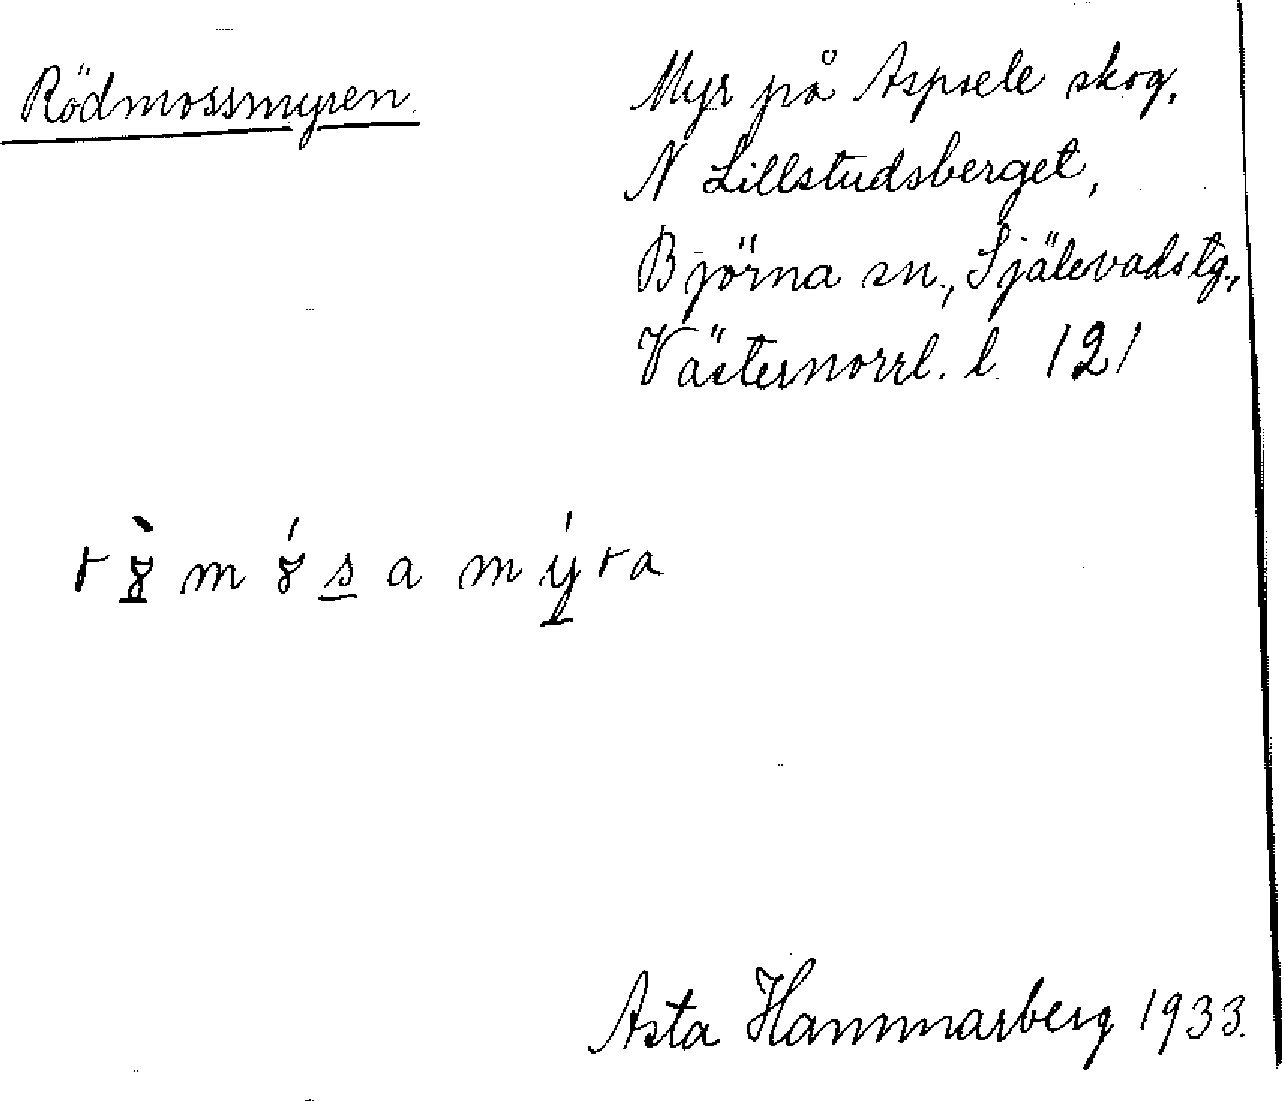 Rödmossmyren.
Myr på Aspsele skog,
N Lillstudsberget,
Björna sn., Själevads tg.,
Västernorrl. l. 121
m a m ra
Asta Hammarberg 1933.